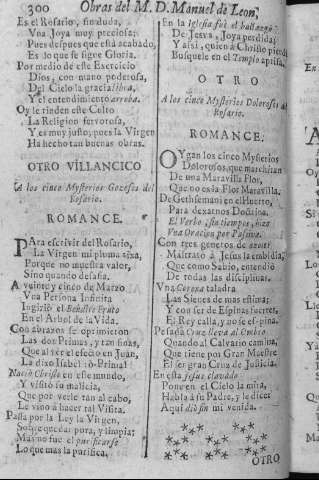 300 Obras del M. D. Manuel de Leon,
Es el Rosario, sin duda,
Vna Joya muy preciosa;
Pues despues que està acabado,
Es lo que se sigue Gloria.
Por medio de este Exercicio
Dios, con mano poderosa,
Del Cielo la gracia libra,
Y el entendimiento arroba.
Oy le rinden este Culto
La Religion fervorosa,
Y es muy justo; pues la Virgen
Ha hecho tan buenas obras.
OTRO VILLANCICO
A los cinco Mysterios Gozosos del
Rosario.
ROMANCE.
PAra escrivir del Rosario,
La Virgen mi pluma
Porque no muestra valer,
Sino quando
A veinte y cinco de Marzo
Vna Persona Infinita
Ingiriò el
En el Arbol de la Vida.
Con abrazos se oprimieron
Las dos Primas, y tan finas,
Que al ver el efecto en Juan,
La dixo Isabel: ò Prima!
Nació Christo en este mundo,
Y visitò su malicia;
Que por verle tan al cabo,
Le vino à hacer tal Visita.
Passa por la Ley la Virgen,
Sobre quedar pura, y limpia;
Mas no fue el purificarse
Lo que mas la purifica.
En la Iglesia fue el hallazgo
De Jesvs, Joya perdida;
Y assi, quien à Christo pierde
Busquele en el Templo aprisa.
OTRO
A los cinco Mysterios Dolorosos del
Rosario.
ROMANCE.
OYgan los cinco Mysterios
Dolorosos, que marchitan
De una Maravilla Flor,
Que no es la Flor Maravilla.
De Gethsemani en el Huerto,
Para dexarnos Doctrina,
El Verbo, sin tiempos, hizo
Vna Oracion por Passiva.
Con tres generos de azote
Maltratò à Jesus la embidia;
Que como Sabio, entendiò
De todas las disciplinas.
Vna Corona taladra
Las Sienes de mas estima;
Y con ser de Espinas fuertes,
El Rey calla, y no se espina.
Pesada Cruz lleva al Ombro
Quando al Calvario camina,
Que tiene por Gran Maestre
El ser gran Cruz de Justicia.
En esta Jesus clavado
Pone en el Cielo la mira,
Habla à su Padre, y le dice:
Aqui diò fin mi venida.
OTRO